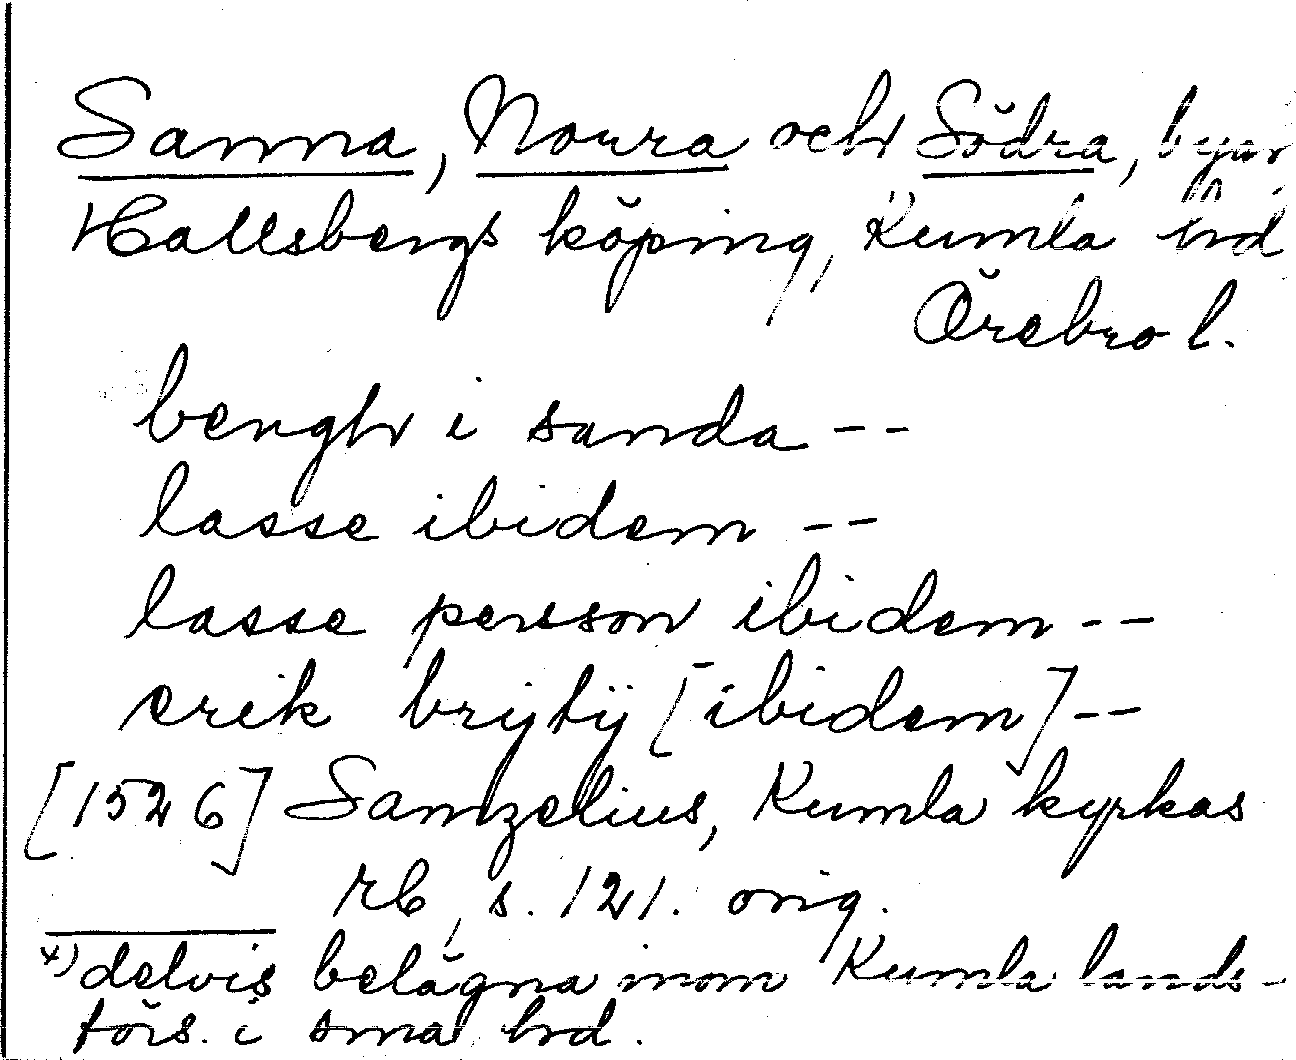 Sanna, Norra och Södra, byar
Hallsbergs köping, Kumla hd
Örebro l.
bengtt i sanda --
lasse ibidem --
lasse persson ibidem --
erik brijtij [ibidem] --
[1526] Samzelius, Kumla kyrkas
rb, s. 121. orig.
x) delvis belägna inom Kumla lands-
förs. i sma hd.